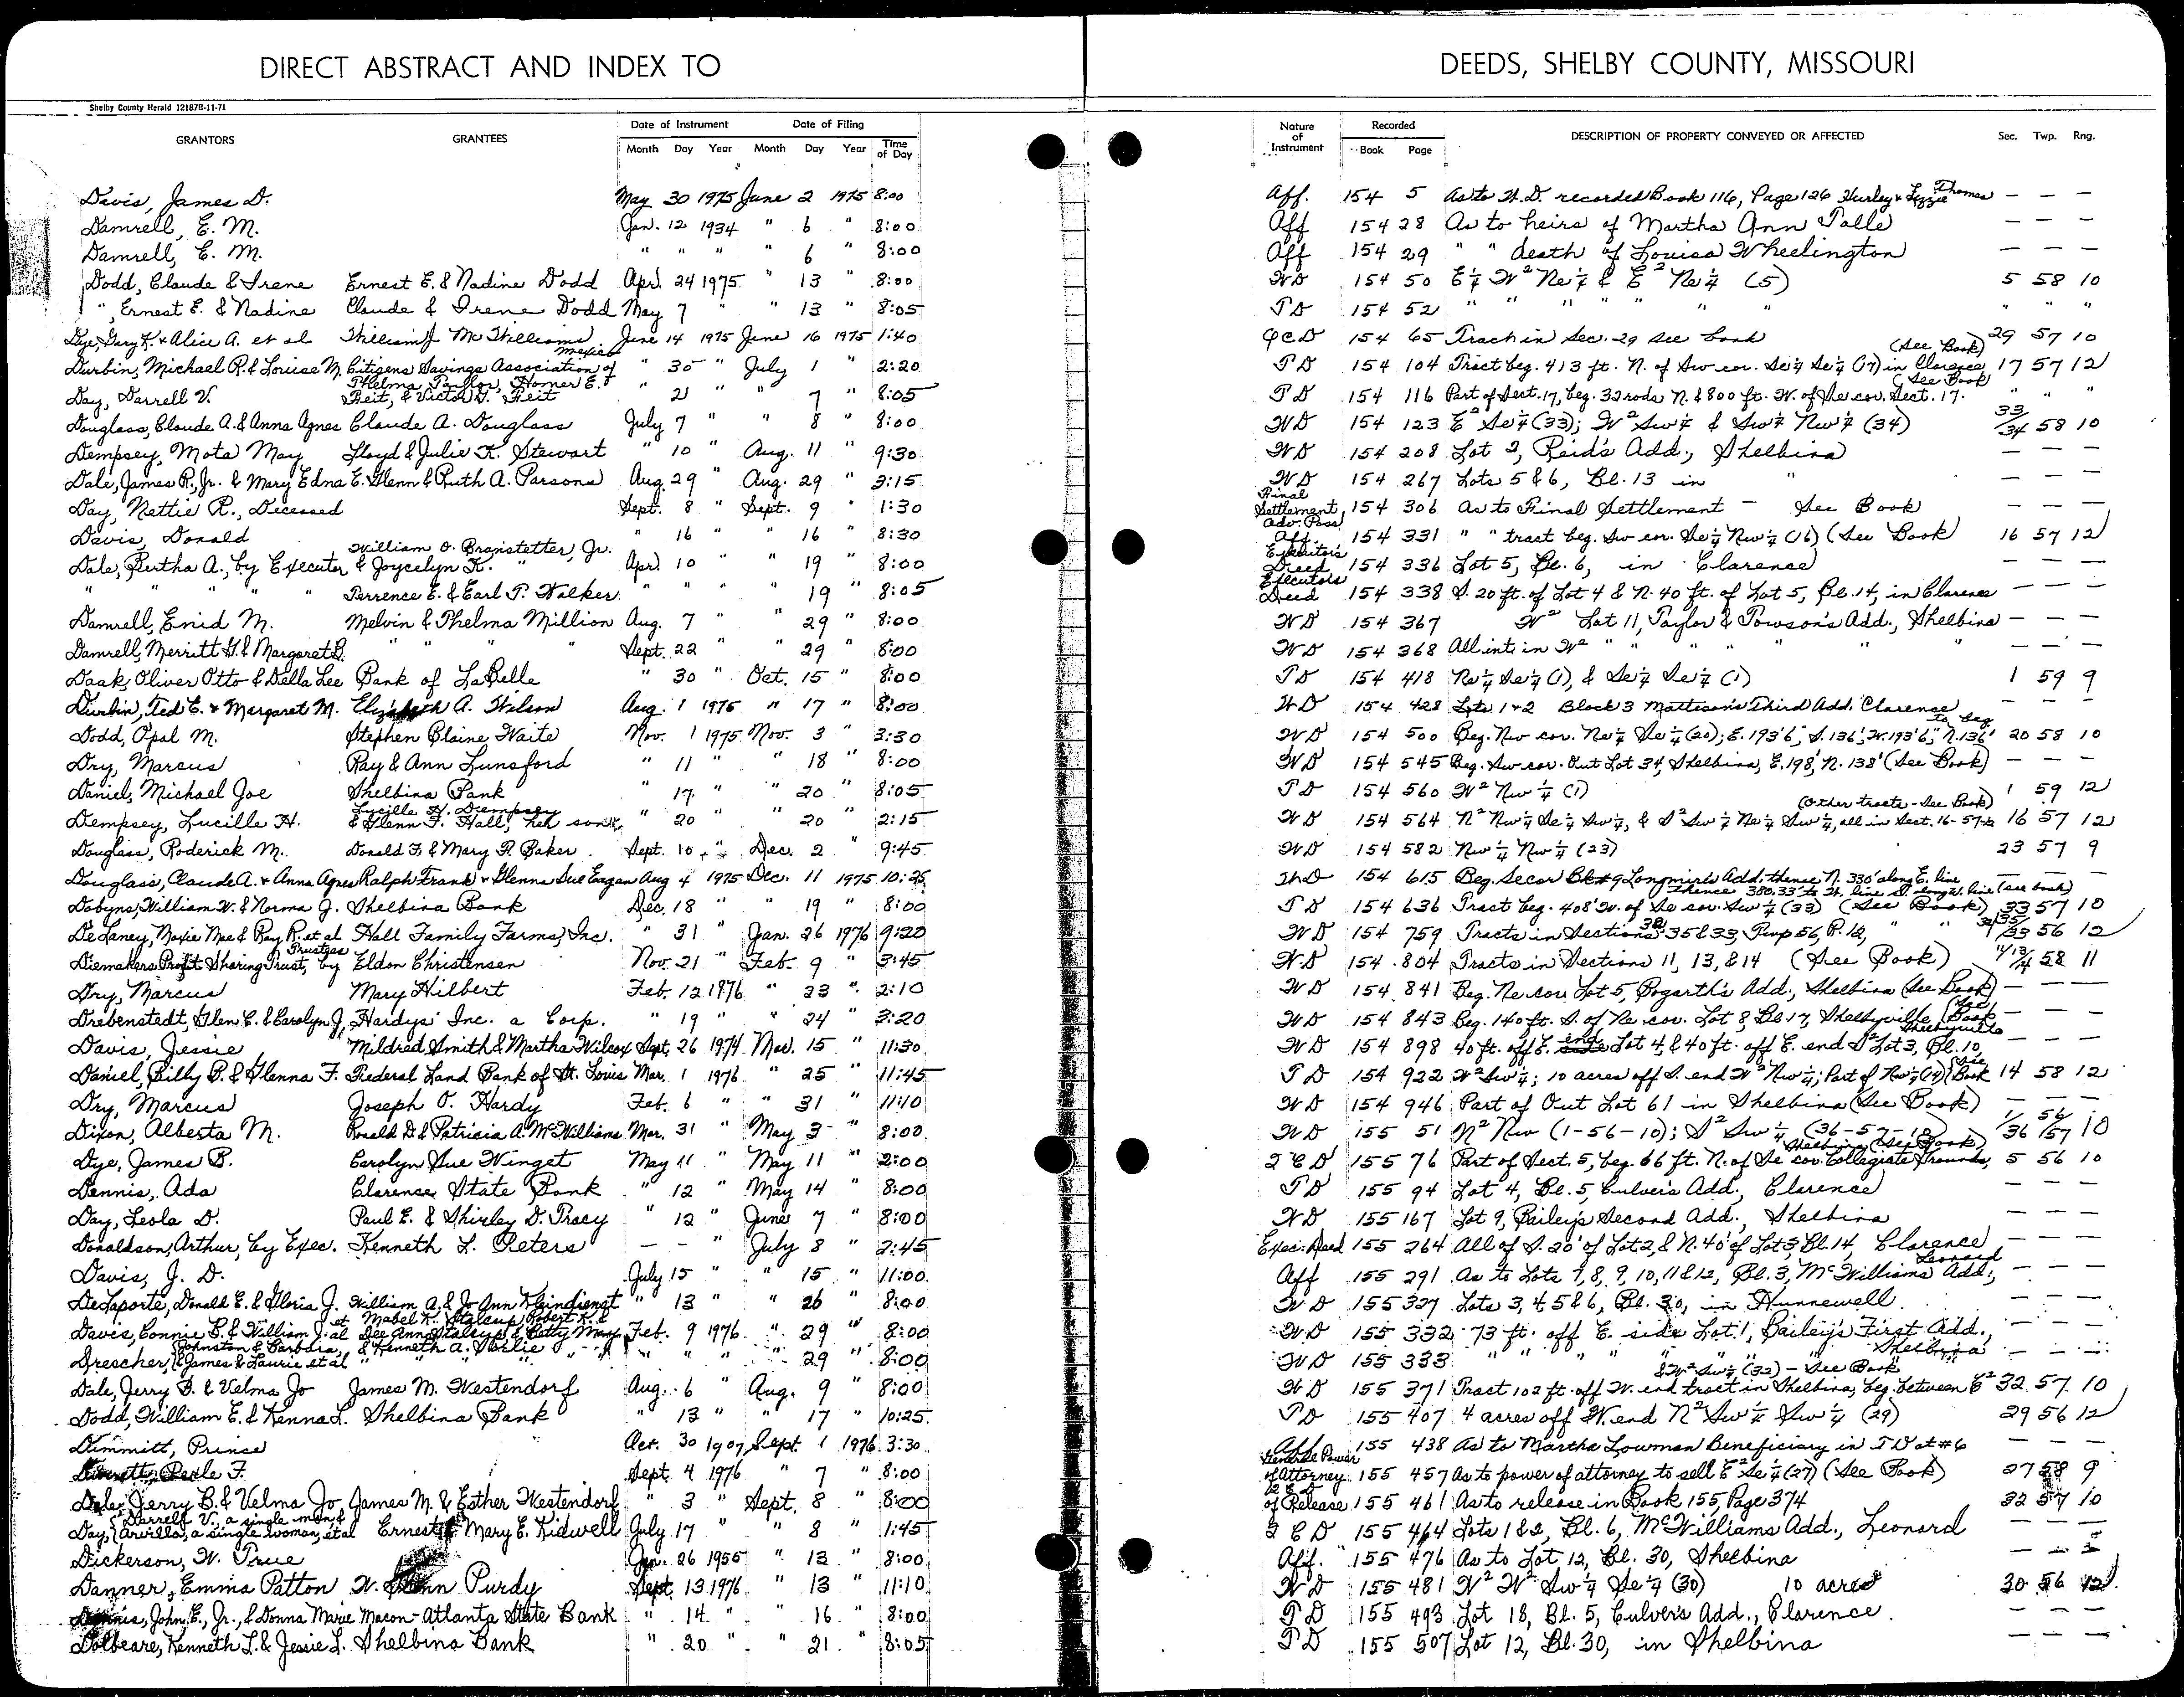 DIRECT ABSTRACT AND INDEX TO DEEDS, SHELBY COUNTY, MISSOURI
Shelby County Herald 12187B-11-71
GRANTORS GRANTEES Date of Instrument Month Day Year Date of Filing Month Day Year Time of Day Nature of Instrument Recorded Book Page DESCRIPTION OF PROPERTY CONVEYED OR AFFECTED Sec. Twp. Rng.
Davis, James D. May 30 1975 June 2 1975 8:00 Aff. 154 5 As to W.D. recorded Book 116, Page 126 Hurley & Lizzie Thomas — — —
Damrell, E. M. Jan. 12 1934 " 6 " 8:00 Aff 154 28 As to heirs of Martha Ann Talle — — —
Damrell, E. M. " " " " 6 " 8:00 Aff 154 29 " " death of Louisa Wheelington — — —
Dodd, Claude & Irene Ernest E. & Nadine Dodd Apr. 24 1975 " 13 " 8:00 WD 154 50 E¼ W² Ne¼ & E² Ne¼ (5) 5 58 10
", Ernest E. & Nadine Claude & Irene Dodd May 7 " 13 " 8:05 TD 154 52 " " " " " " " "
Dye, Gary K. & Alice A. et al William J. McWilliams June 14 1975 June 16 1975 1:40 QCD 154 65 Tract in Sec. 29 see book 29 57 10
Durbin, Michael R. & Louise M. Citizens Savings Association of Mexico " 30 " July 1 " 2:20 TD 154 104 Tract beg. 413 ft. N. of Sw cor. Se¼ Se¼ (17) in Clarence (See Book) 17 57 12
Day, Darrell V. Thelma Taylor, Homer E. Feit, & Victor D. Feit " 21 " " 7 " 8:05 TD 154 116 Part of Sect. 17, beg. 32 rods N. & 800 ft. W. of Se cor. Sect. 17. (See Book) " "
Douglass, Claude A. & Anna Agnes Claude A. Douglass July 7 " " 8 " 8:00 WD 154 123 E² Se¼ (33); W² Sw¼ & Sw¼ Nw¼ (34) 33/34 58 10
Dempsey, Mota May Lloyd & Julie K. Stewart " 10 " Aug. 11 " 9:30 WD 154 208 Lot 2, Reid's Add., Shelbina — — —
Dale, James R., Jr. & Mary Edna E. Glenn & Ruth A. Parsons Aug. 29 " Aug. 29 " 3:15 WD 154 267 Lots 5 & 6, Bl. 13 in " — — —
Day, Nettie R., Deceased Sept. 8 " Sept. 9 " 1:30 Final Settlement 154 306 As to Final Settlement — See Book — —
Davis, Donald " 16 " " 16 " 8:30 Adv. Poss. Aff. 154 331 " " tract beg. Sw cor. Se¼ Nw¼ (16) (See Book) 16 57 12
Dale, Bertha A., by Executor William O. Branstetter, Jr. & Joycelyn K. " Apr. 10 " " 19 " 8:00 Executor's Deed 154 336 Lot 5, Bl. 6, in Clarence — — —
" " " " Terrence E. & Earl T. Walker " " " " 19 " 8:05 Executors Deed 154 338 S. 20 ft. of Lot 4 & N. 40 ft. of Lot 5, Bl. 14, in Clarence — — —
Damrell, Enid M. Melvin & Thelma Million Aug. 7 " " 29 " 8:00 WD 154 367 W² Lot 11, Taylor & Towson's Add., Shelbina — — —
Damrell, Merritt G. & Margaret B. " " " Sept. 22 " 29 " 8:00 WD 154 368 All int. in W² " " " " " — — —
Daak, Oliver Otto & Della Lee Bank of LaBelle " 30 " Oct. 15 " 8:00 TD 154 418 Ne¼ Se¼ (1), & Se¼ Se¼ (1) 1 59 9
Durbin, Ted E. & Margaret M. Elizabeth A. Wilson Aug. 1 1975 " 17 " 8:00 WD 154 428 Lots 1 & 2 Block 3 Mattison's Third Add. Clarence — — —
Dodd, Opal M. Stephen Blaine Waite Nov. 1 1975 Nov. 3 " 3:30 WD 154 500 Beg. Nw cor. Ne¼ Se¼ (20); E. 193'6", S. 136', W. 193'6", N. 136' to beg. 20 58 10
Dry, Marcus Ray & Ann Lunsford " 11 " " 18 " 8:00 WD 154 545 Beg. Sw cor. Out Lot 34, Shelbina, E. 198', N. 138' (See Book) — — —
Daniel, Michael Joe Shelbina Bank " 17 " " 20 " 8:05 TD 154 560 W² Nw¼ (1) 1 59 12
Dempsey, Lucille H. Lucille H. Dempsey & Glenn F. Hall, her son " 20 20 " 2:15 WD 154 564 N² Nw¼ Se¼ Sw¼, & S² Sw¼ Ne¼ Sw¼, all in Sect. 16-57-12 (Other tracts - See Book) 16 57 12
Douglass, Roderick M. Donald F. & Mary R. Baker Sept. 10 " Dec. 2 " 9:45 WD 154 582 Nw¼ Nw¼ (23) 23 57 9
Douglass, Claude A. & Anna Agnes Ralph Frank & Glenna Sue Eagan Aug 4 1975 Dec. 11 1975 10:25 WD 154 615 Beg. Secor Blk 9 Longmire's Add. thence N. 330' along E. line thence 380.33' to W. line S along W. line (see book)
Dobyns, William W. & Norma J. Shelbina Bank Dec. 18 " " 19 " 8:00 TD 154 636 Tract beg. 408' W. of Se cor. Sw¼ (33) (See Book) 33 57 10
DeLaney, Moxie Mae & Ray R. et al Hall Family Farms, Inc. " 31 " Jan. 26 1976 9:20 WD 154 759 Tracts in Sections 35 & 33, Twp 56, R. 12, " " 56 12
Diemakers Profit Sharing Trust, by Trustees Eldon Christensen Nov. 21 " Feb. 9 " 3:45 WD 154 804 Tracts in Sections 11, 13, & 14 (See Book) 11/13/14 58 11
Dry, Marcus Mary Hilbert Feb. 12 1976 " 23 " 2:10 WD 154 841 Beg. Ne cor. Lot 5, Bogarth's Add., Shelbina (See Book) — — —
Drebenstedt, Glen C. & Carolyn J. Hardys' Inc. a Corp. " 19 " " 24 " 3:20 WD 154 843 Beg. 140 ft. S. of Ne cor. Lot 8, Bl 17, Shelbyville (See Book) — — —
Davis, Jessie Mildred Smith & Martha Wilcox Sept. 26 1974 Mar. 15 " 11:30 WD 154 898 40 ft. off E. end Lot 4, & 40 ft. off E. end S² Lot 3, Bl. 10, Shelbyville — — —
Daniel, Billy P. & Glenna F. Federal Land Bank of St. Louis Mar. 1 1976 " 25 " 11:45 TD 154 922 W² Sw¼; 10 acres off S. end W² Nw¼; Part of Nw¼ (14) (See Book 14 58 12
Dry, Marcus Joseph O. Hardy Feb. 6 " " 31 " 11:10 WD 154 946 Part of Out Lot 61 in Shelbina (See Book) — — —
Dixon, Alberta M. Ronald D. & Patricia A. McWilliams Mar. 31 " May 3 " 8:00 WD 155 51 N² Nw (1-56-10); S² Sw¼ (36-57-10) 1/36 56/57 10
Dye, James B. Carolyn Sue Winget May 11 " May 11 " 2:00 QCD 155 76 Part of Sect. 5, beg. 66 ft. N. of Se cor. Collegiate Grounds, Shelbina (See Book) 5 56 10
Dennis, Ada Clarence State Bank " 12 " May 14 " 8:00 TD 155 94 Lot 4, Bl. 5, Culver's Add., Clarence — — —
Day, Leola D. Paul E. & Shirley D. Tracy " 12 " June 7 " 8:00 WD 155 167 Lot 9, Bailey's Second Add., Shelbina — — —
Donaldson, Arthur, by Exec. Kenneth L. Peters — — " July 8 " 2:45 Exec. Deed 155 264 All of S. 20' of Lot 2, & N. 40' of Lot 3, Bl. 14, Clarence — — —
Davis, J. D. July 15 " " 15 " 11:00 Aff 155 291 As to Lots 7, 8, 9, 10, 11 & 12, Bl. 3, McWilliams Add., Leonard — — —
DeLaporte, Donald E. & Gloria J. William A. & Jo Ann Kleindienst " 13 " 26 " 8:00 WD 155 327 Lots 3, 4, 5 & 6, Bl. 30, in Hunnewell — — —
Davis, Connie B. & William J. et al Mabel K. Stalcup, Robert K. & Dee Ann Stalcup & Betty Mary Feb. 9 1976 " 29 " 8:00 WD 155 332 73 ft. off E. side Lot 1, Bailey's First Add., Shelbina — — —
Drescher, James & Laurie et al Johnston & Barbara, & Kenneth A. " " " " 29 " 8:00 WD 155 333 " " " " " " — — —
Dale, Jerry B. & Velma Jo James M. Westendorf Aug. 6 " Aug. 9 " 8:00 WD 155 371 Tract 102 ft. off W. end tract in Shelbina, beg. between E² & W² Sw¼ (32) - See Book 32 57 10
Dodd, William E. & Kenna L. Shelbina Bank " 13 " " 17 " 10:25 TD 155 407 4 acres off W. end N² Sw¼ Sw¼ (29) 29 56 12
Dimmitt, Prince Oct. 30 1907 Sept. 1 1976 3:30 Aff. 155 438 As to Martha Lowman Beneficiary in TD at #6 — — —
Perle F. Sept. 4 1976 " 7 " 8:00 General Power of Attorney 155 457 As to power of attorney to sell E² Se¼ (27) (See Book) 27 58 9
Dale, Jerry B. & Velma Jo James M. & Esther Westendorf " 3 " Sept. 8 " 8:00 of Release 155 461 As to release in Book 155, Page 374 32 57 10
Day, Darrell V., a single man & Arvilla, a single woman, et al Ernest & Mary E. Kidwell July 17 " " 8 " 1:45 QCD 155 464 Lots 1 & 2, Bl. 6, McWilliams Add., Leonard — — —
Dickerson, W. True Jan. 26 1955 " 13 " 8:00 Aff. 155 476 As to Lot 12, Bl. 30, Shelbina — — —
Danner, Emma Patton W. Purdy Sept. 13 1976 " 13 " 11:10 WD 155 481 W² W² Sw¼ Se¼ (30) 10 acres 30 56 12
Dennis, John E., Jr., & Donna Marie Macon-Atlanta State Bank " 14 " " 16 " 8:00 TD 155 493 Lot 18, Bl. 5, Culver's Add., Clarence — — —
Dolbeare, Kenneth L. & Jessie L. Shelbina Bank " 20 " " 21 " 8:05 TD 155 507 Lot 12, Bl. 30, in Shelbina — — —